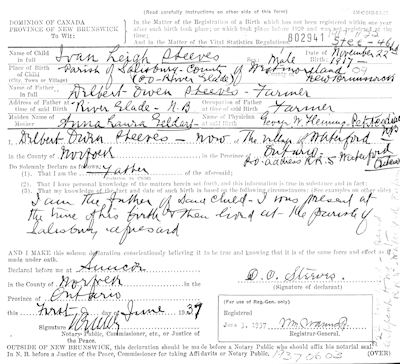 (Read carefully instructions on other side of this form)
DOMINION OF CANADA
PROVINCE OF NEW BRUNSWICK
To Wit:
In the Matter of the Registration of a Birth which has not been registered within one year
after such birth took place; or which took place before
And in the Matter of the Vital Statistics Registration
802941
Name of Child in full Ivan Leigh Steeves Sex Male Date of Birth November 22 1917
Place of Birth (City, Town or Village) Parish of Salisbury County of Westmorland New Brunswick
Name of Father in full Dilbert Owen Steeves - Farmer
Address of Father at time of birth River Glade - N.B Occupation of Father at time of Birth Farmer
Maiden Name of Mother Anna Laura Geldart Name of Physician at said Birth George W. Fleming Petitcodiac N.B
I, Dilbert Owen Steeves - now of The village of Waterford
in the County of Norfolk Ontario
P.O. address R.R. 5 Waterford Ontario
Do Solemnly Declare as follows:
(1). That I am the Father of said child
(2). That I have personal knowledge of the matters herein set forth, and this information is true in substance and in fact:
(3) That my knowledge of the fact and date of such birth is based in the following circumstances: (See examples on other side)
I am the father of said child - I was present at
the time of his birth & then lived at the parish of
Salisbury aforesaid
AND I MAKE this solemn declaration conscientiously believing it to be true and knowing it is of the same force and effect as if made under oath.
Declared before me at Simcoe
in the County of Norfolk
Province of Ontario
this First day of June 1937
D. O. Steeves
(Signature of declarant)
Signature
Notary Public, Commissioner, etc., or Justice of
the Peace.
(For use of Reg.-Gen. only)
Registered
June 3, 1937
Registrar-General.
OUTSIDE OF NEW BRUNSWICK, this declaration should be made before a Notary Public who should affix his notarial seal.
In N. B. before a Justice of the Peace, Commissioner for taking Affidavits or Notary Public.
(OVER)